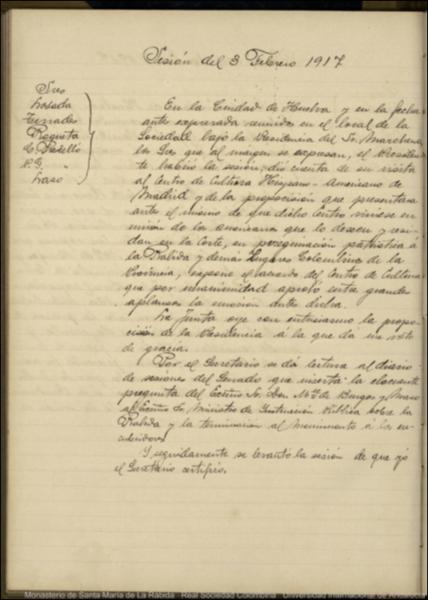 Sesión del 3 Febrero 1917
Sres
Losada
Terrades
Requeta
C. Padilla
Laso
En la Ciudad de Huelva y en la fecha
ante expresada reunidos en el local de la
Sociedad bajo la Presidencia del Sr. Marchena,
los Sres que al margen se expresan, el Presiden-
te habrió la sesión, dió cuenta de su visita
al Centro de Cultura Hispano-Americano de
Madrid y de la proposición que presentara
ante el mismo de que dicho Centro viniese en
unión de los americanos que lo deseen y resi-
dan en la Corte, en peregrinación patriótica á
la Rabida y demás Lugares Colombinos de la
Provincia, expuso el acuerdo del Centro de Cultura
que por unanimidad aprobó entre grandes
aplausos la moción antes dicha.
La Junta oye con entusiasmo la propo-
ción de la Presidencia á la que dá un voto
de gracia.
Por el Secretario se dá lectura al diario
de sesiones del Senado que inserta la elocuente
pregunta del Excmo Sr. Don Ml. de Burgos y Mazo
al Excmo Sr. Ministro de Instrucción Pública sobre la
Rabida y la terminación al Monumento á los des-
cubridores.
Y seguidamente se levantó la sesión de que yó
el Secretario certifico.
Monasterio de Santa María de La Rábida - Real Sociedad Colombina - Universidad Internacional de Andalucía